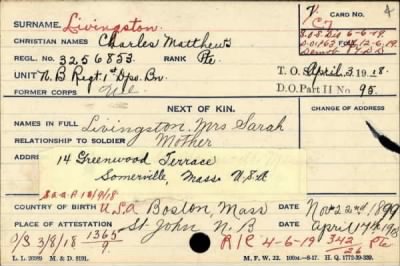 SURNAME. Livingston. CARD NO.
CHRISTIAN NAMES Charles Matthew
REGL. NO. 3256853. RANK Pte.
UNIT N.B Regt. 1st Dpo. Bn. T. O. S. April 3 1918.
FORMER CORPS Nil D. O. Part II No 95.
NEXT OF KIN. CHANGE OF ADDRESS
NAMES IN FULL Livingston. Mrs Sarah
RELATIONSHIP TO SOLDIER Mother
ADDRESS 14 Greenwood Terrace
Somerville, Mass. U.S.A
COUNTRY OF BIRTH U.S.A Boston, Mass Nov 22nd 1899
PLACE OF ATTESTATION St John N.B April 17th 1918
O/S 3/8/18 1365/9. R/R 4-6-19 342/26 Pte
L. L. M. & D. 8191. M. F. W. 22. H. Q. 1772-39-339.